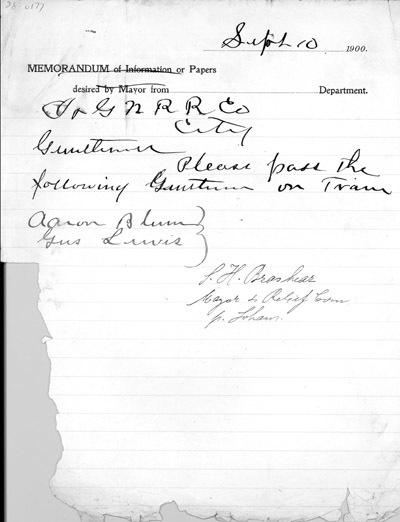 Sept. 10 1900.
MEMORANDUM of Information or Papers
desired by Mayor from Department.
G N R R Co
City
Gentlemen
Please pass the
following Gentlemen on Train
Aaron Blum
Gus Lewis
Mayor & Relief Com